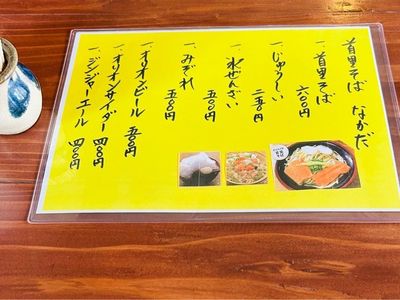 首里そば なかだ
一、首里そば 六〇〇円
一、じゅうしい 二五〇円
一、氷ぜんざい 五〇〇円
一、みぞれ 五〇〇円
一、オリオンビール 五〇〇円
一、オリオンサイダー 四〇〇円
一、ジンジャーエール 四〇〇円